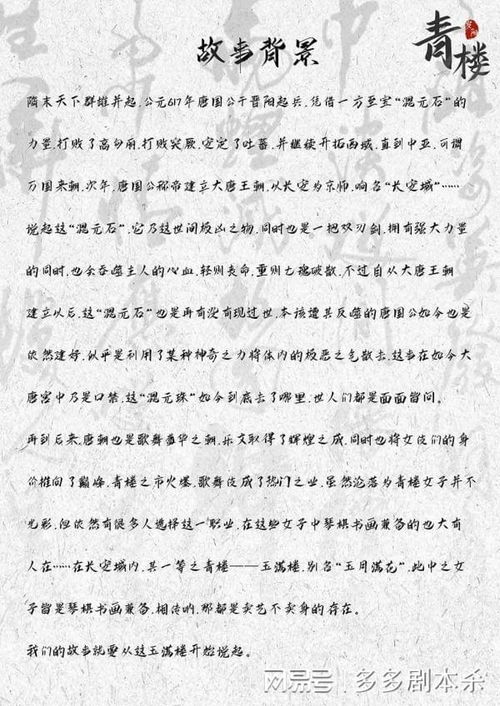 故事背景
青楼
隋末天下群雄并起,公元617年唐国公于晋阳起兵,凭借一方至宝“混元石”的
力量,打败了高句丽,打败突厥,安定了吐蕃,并继续开拓西域,直到中亚,可谓
万国来朝,次年,唐国公称帝建立大唐王朝,以长安为京师,响名“长安城”……
说起这“混元石”,它乃这世间极凶之物,同时也是一把双刃剑,拥有强大力量
的同时,也会吞噬主人的心血,轻则丧命,重则七魂破散,不过自从大唐王朝
建立以后,这“混元石”也是再有没有现过世,本该遭其反噬的唐国公如今也是
依然健好,似乎是利用了某种神奇之力将体内的极恶之气散去,这当在如今大
唐宫中乃是口禁,这“混元珠”如今到底去了哪里,世人们都是面面皆问。
再到后来,唐朝也是歌舞华之朝,乐文取得了辉煌之成,同时也将女伎们的身
价推向了巅峰,青楼之市火爆,歌舞伎成了热门之业,虽然沦落为青楼女子并不
光彩,但依然有很多人选择这一职业,在这些女子中琴棋书画兼备的也大有
人在……在长安城内,其一等之青楼——玉满楼,别名“玉月满花”,此中之女
子皆是琴棋书画兼备,相传呐,那都是卖艺不卖身的存在。
我们的故事就要从这玉满楼开始说起。
网易号 | 多多剧本杀